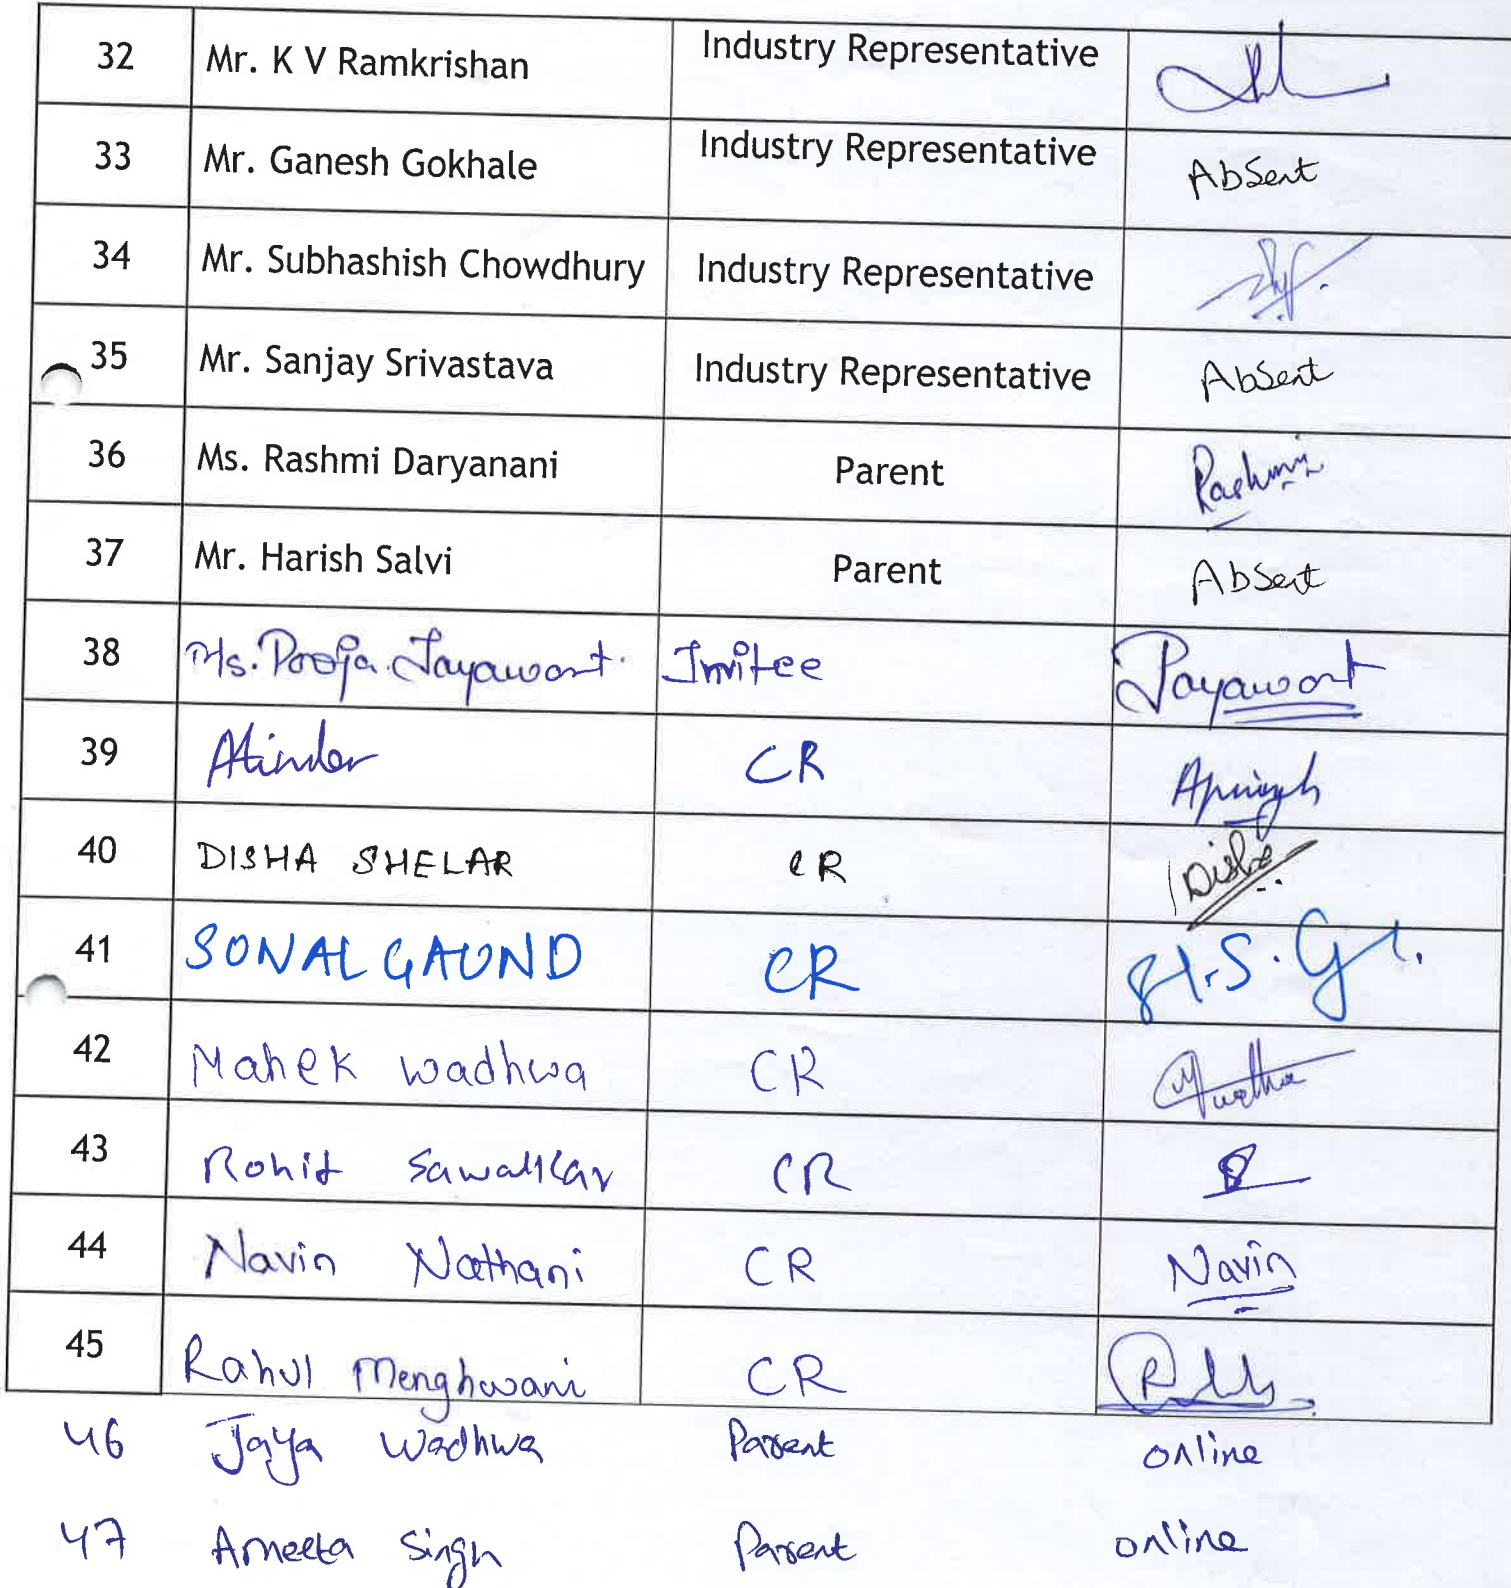 32 Mr. K V Ramkrishan Industry Representative
33 Mr. Ganesh Gokhale Industry Representative Absent
34 Mr. Subhashish Chowdhury Industry Representative
35 Mr. Sanjay Srivastava Industry Representative Absent
36 Ms. Rashmi Daryanani Parent Rashmi
37 Mr. Harish Salvi Parent Absent
38 Ms. Pooja Jayawant. Invitee Jayawant
39 Atinder CR
40 DISHA SHELAR CR Disha
41 SONAL GAUND CR
42 Mahek wadhwa CR
43 Rohit Sawalkar CR
44 Navin Nathani CR Navin
45 Rahul Menghwani CR
46 Jaya Wadhwa Parent online
47 Ameeta Singh Parent online